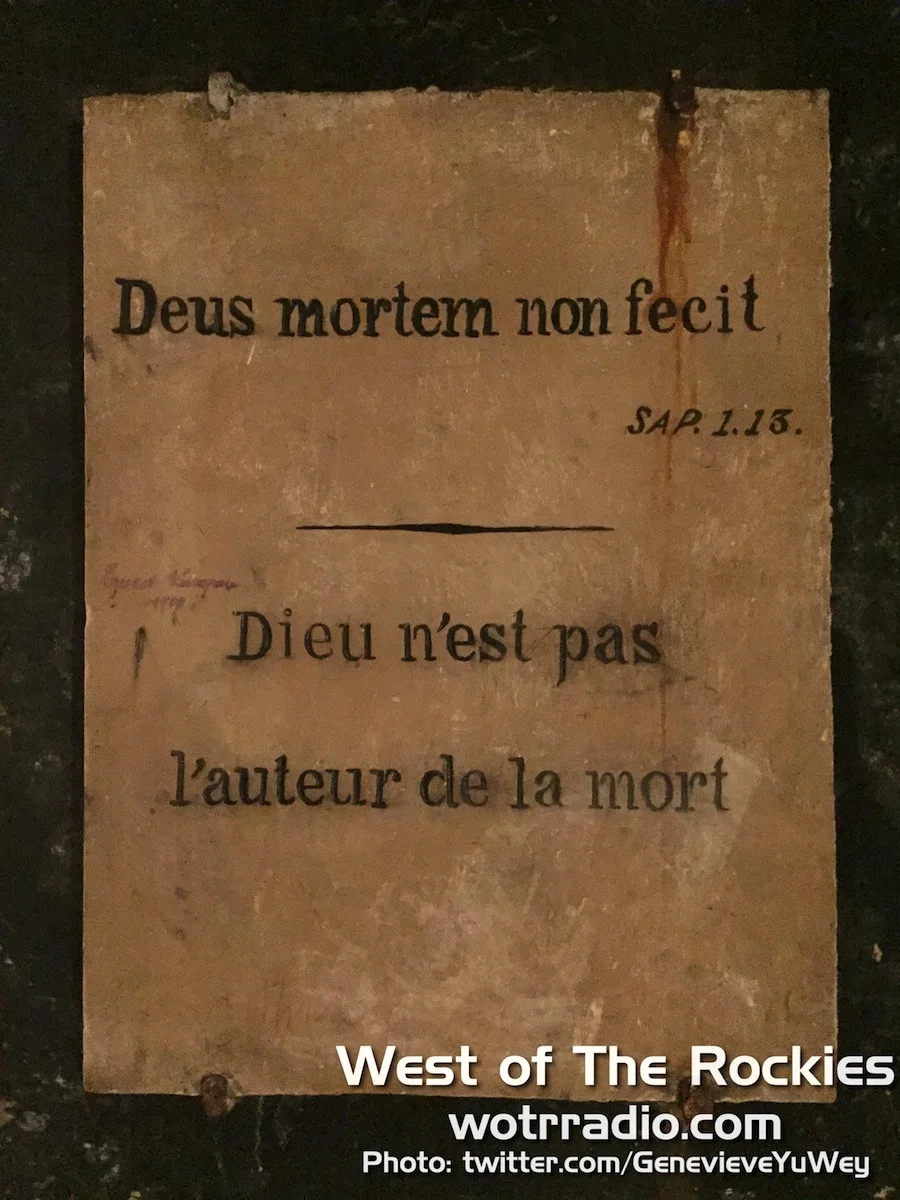 Deus mortem non fecit
SAP. 1.13.
Dieu n'est pas
l'auteur de la mort
West of The Rockies
wotrradio.com
Photo: twitter.com/GenevieveYuWey